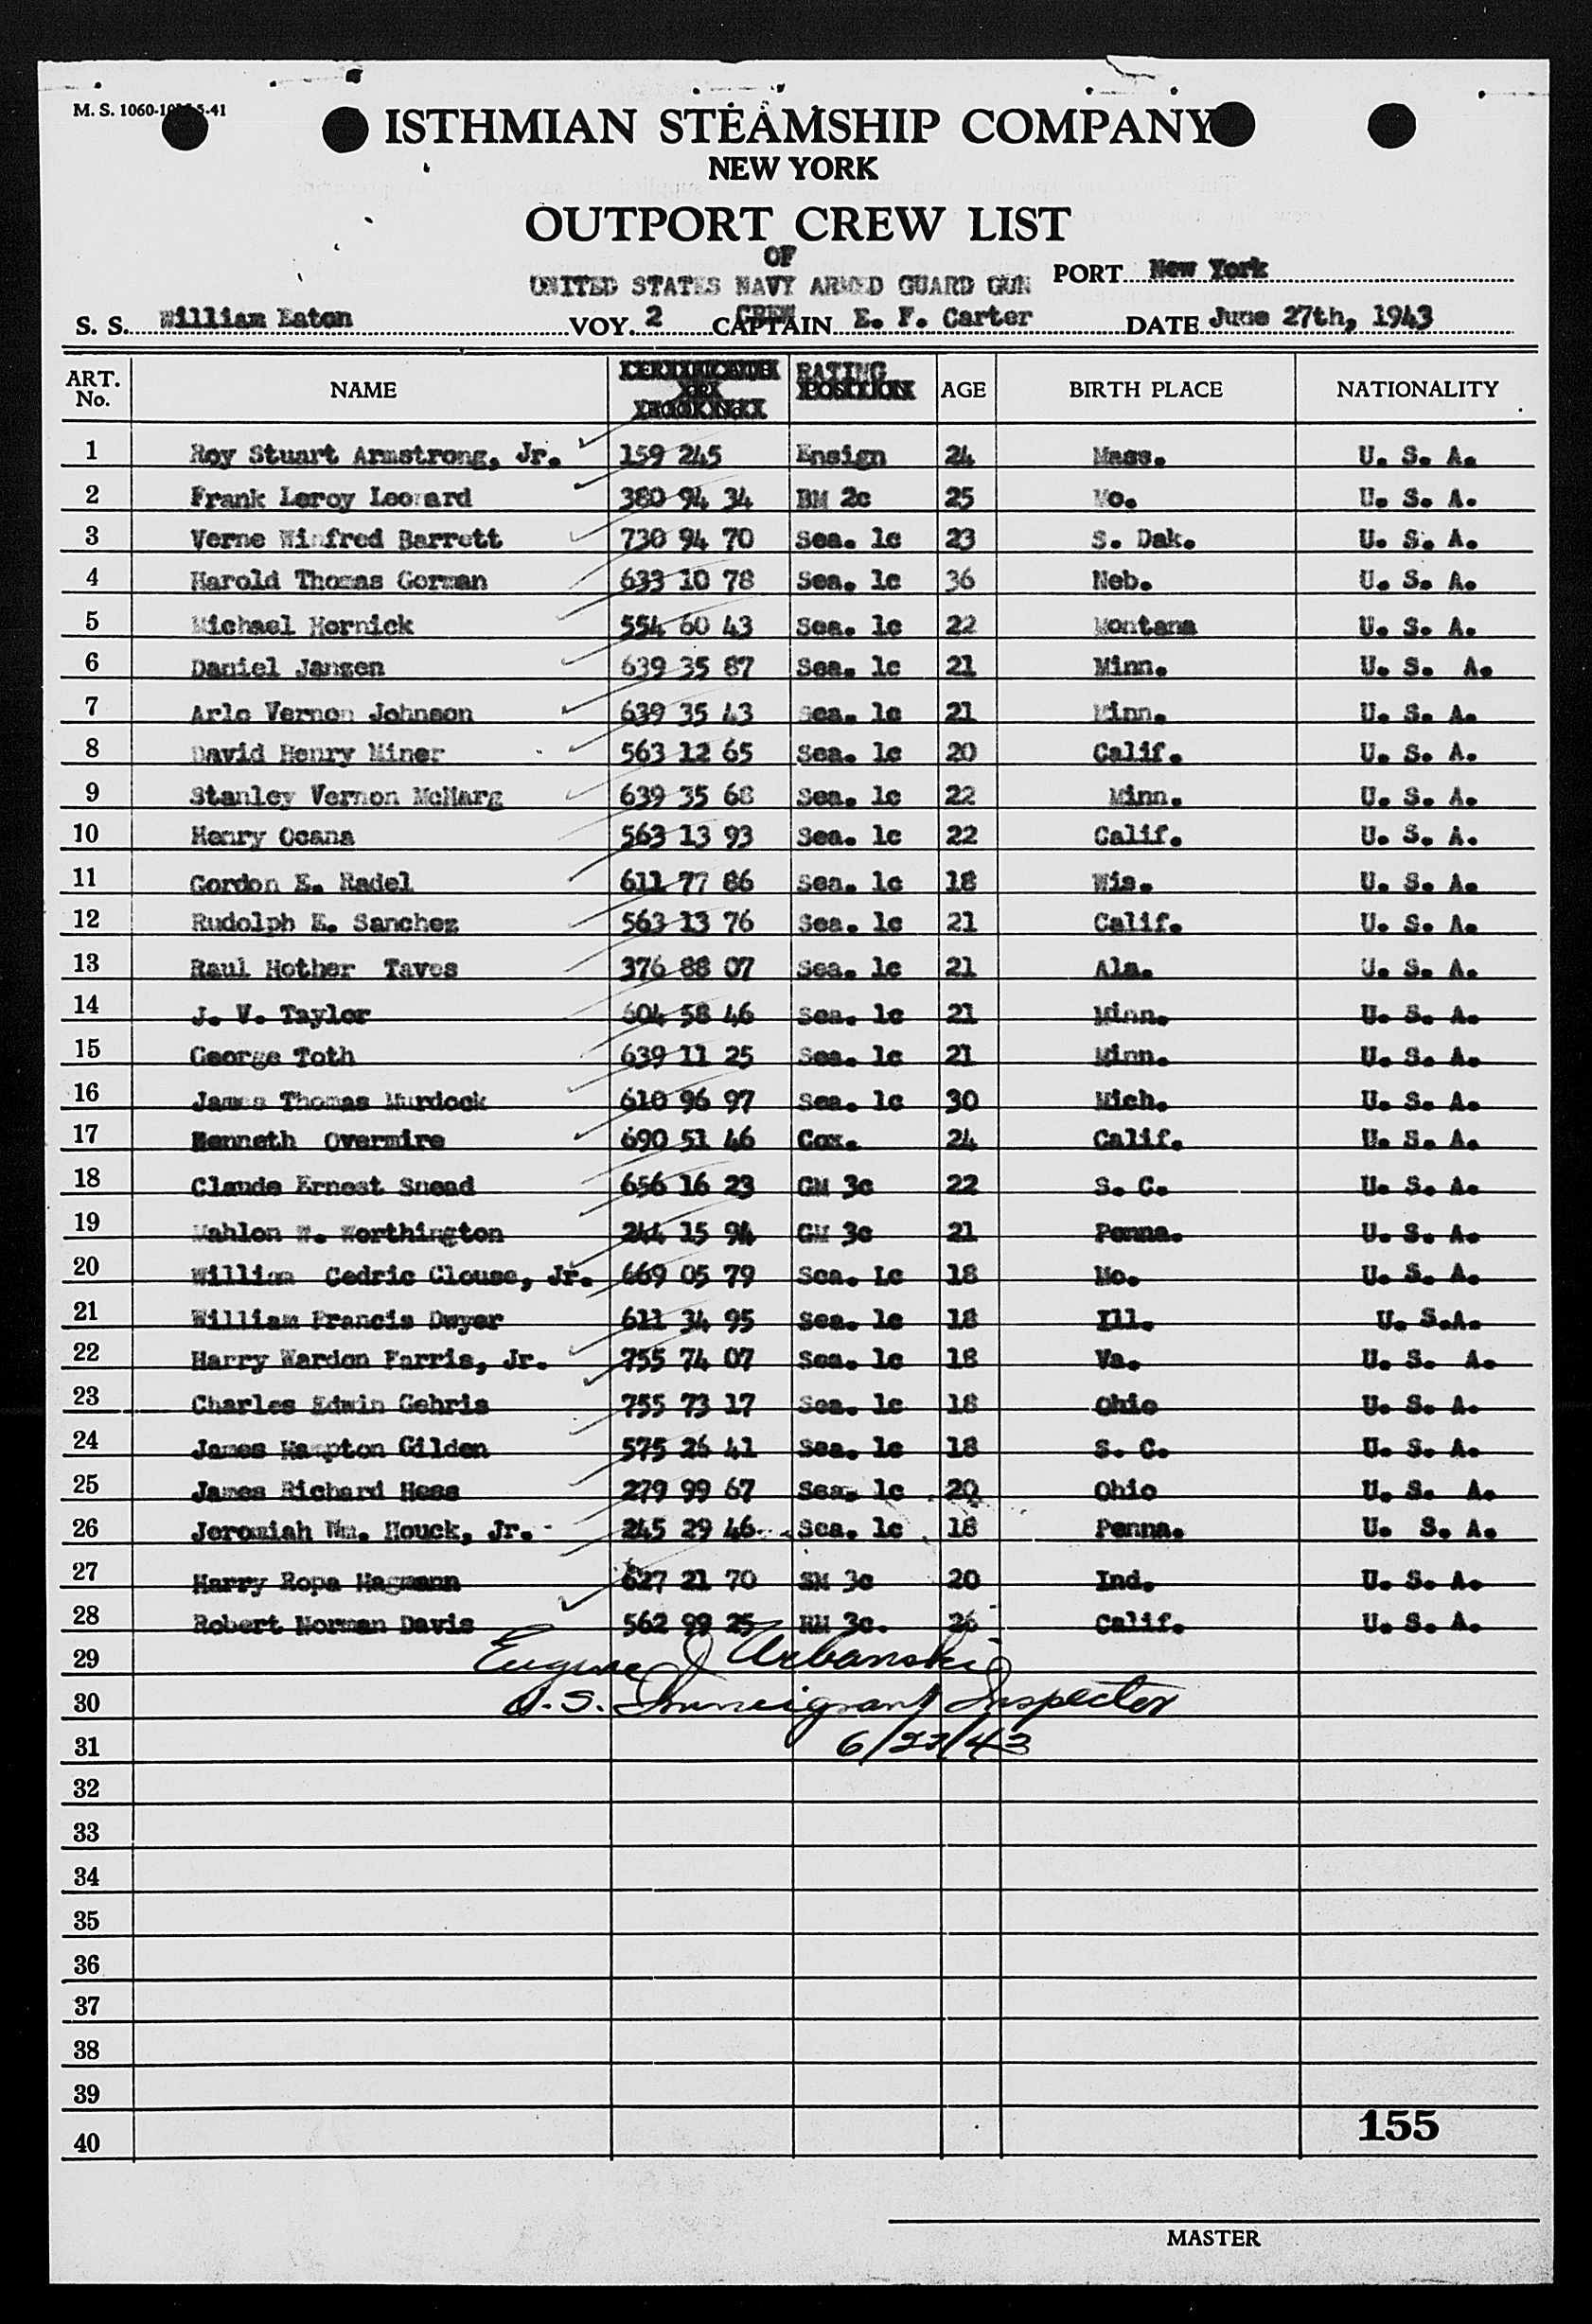 M. S. 1060- 5-41
ISTHMIAN STEAMSHIP COMPANY
NEW YORK
OUTPORT CREW LIST
OF
UNITED STATES NAVY ARMED GUARD GUN CREW
PORT New York
S. S. William Eaton VOY. 2 CAPTAIN E. F. Carter DATE June 27th, 1943
ART. No. NAME RATING AGE BIRTH PLACE NATIONALITY
1 Roy Stuart Armstrong, Jr. 159 245 Ensign 24 Mass. U. S. A.
2 Frank Leroy Leonard 380 94 34 BM 2c 25 Mo. U. S. A.
3 Verne Winfred Barrett 730 94 70 Sea. 1c 23 S. Dak. U. S. A.
4 Harold Thomas Gorman 633 10 78 Sea. 1c 36 Neb. U. S. A.
5 Michael Hornick 554 60 43 Sea. 1c 22 Montana U. S. A.
6 Daniel Janzen 639 35 87 Sea. 1c 21 Minn. U. S. A.
7 Arlo Vernon Johnson 639 35 43 Sea. 1c 21 Minn. U. S. A.
8 David Henry Miner 563 12 65 Sea. 1c 20 Calif. U. S. A.
9 Stanley Vernon McHarg 639 35 68 Sea. 1c 22 Minn. U. S. A.
10 Henry Ocana 563 13 93 Sea. 1c 22 Calif. U. S. A.
11 Gordon E. Radel 611 77 86 Sea. 1c 18 Wis. U. S. A.
12 Rudolph E. Sanchez 563 13 76 Sea. 1c 21 Calif. U. S. A.
13 Raul Hother Taves 376 88 07 Sea. 1c 21 Ala. U. S. A.
14 J. V. Taylor 604 58 46 Sea. 1c 21 Minn. U. S. A.
15 George Toth 639 11 25 Sea. 1c 21 Minn. U. S. A.
16 James Thomas Murdock 610 96 97 Sea. 1c 30 Mich. U. S. A.
17 Kenneth Overmire 690 51 46 Cox. 24 Calif. U. S. A.
18 Claude Ernest Snead 656 16 23 GM 3c 22 S. C. U. S. A.
19 Mahlon W. Worthington 244 15 94 GM 3c 21 Penna. U. S. A.
20 William Cedric Clouse, Jr. 669 05 79 Sea. 1c 18 Mo. U. S. A.
21 William Francis Dwyer 611 34 95 Sea. 1c 18 Ill. U. S.A.
22 Harry Wardon Farris, Jr. 755 74 07 Sea. 1c 18 Va. U. S. A.
23 Charles Edwin Gehris 755 73 17 Sea. 1c 18 Ohio U. S. A.
24 James Hampton Gilden 575 26 41 Sea. 1c 18 S. C. U. S. A.
25 James Richard Hess 279 99 67 Sea. 1c 20 Ohio U. S. A.
26 Jeremiah Wm. Houck, Jr. 245 29 46 Sea. 1c 18 Penna. U. S. A.
27 Harry Ropa Hagmann 627 21 70 SM 3c 20 Ind. U. S. A.
28 Robert Norman Davis 562 99 25 RM 3c. 26 Calif. U. S. A.
29 Eugene J Urbanski
30 U. S. Immigrant Inspector
31 6/27/43
32
33
34
35
36
37
38
39
40
155
MASTER